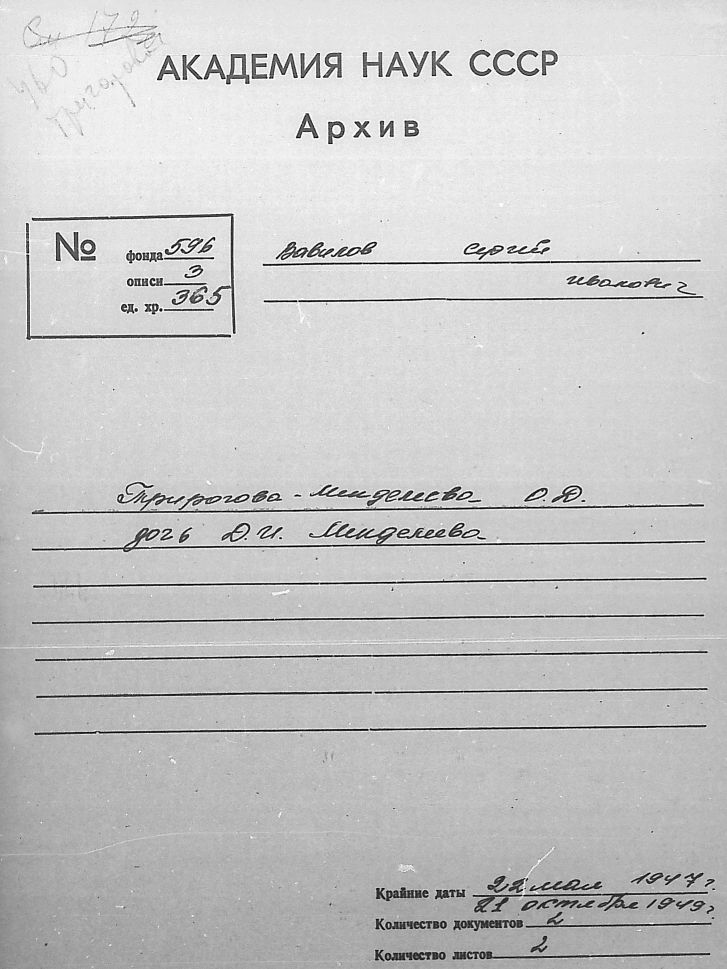 АКАДЕМИЯ НАУК СССР
Архив
№
фонда 596
описи 3
ед. хр. 365
Вавилов Сергей
Иванович
Трирогова-Менделеева О.Д.
дочь Д.И. Менделеева
Крайние даты 22 мая 1947 г.
21 октября 1949 г.
Количество документов 2
Количество листов 2